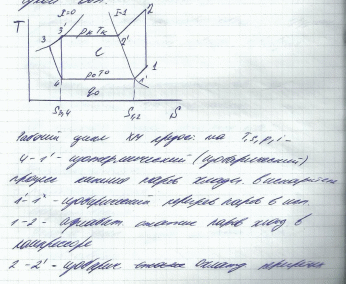 T
x=0
I-1
2
3'
Pк Tк
2'
3
l
1
p₀ T₀
4
1'
q₀
S3,4
S1,2
S
Рабочий цикл ХМ на T, s, p, i-
4-1' - изотермический (изобарический)
процесс кипения паров хладог. в испарителе
1'-1" - изобарический перегрев паров в исп.
1-2 - адиабат сжатие паров хлад в
компрессоре
2-2' - изобарич.